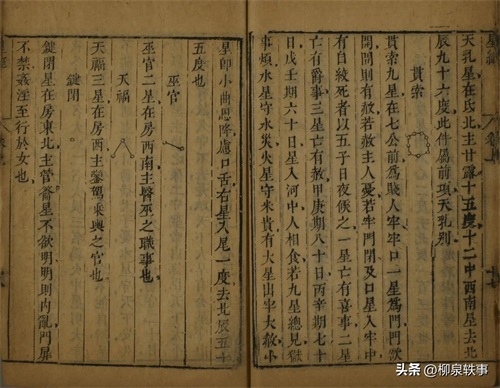 天乳星在氐北主甘露十五度十二中西南星去北
辰九十六度此件屬前項天乳列
貫索
貫索九星在七公前為賤人牢牢口一星為門門欲
開開則有赦若赦主人憂若牢門閉及口星入牢門
有自絞死者以五子日夜候之一星亡有喜事二星
亡有爵事三星亡有赦甲庚期八十日丙辛期七十
日戊壬期六十日星入河中人相食若九星總見獄
事煩水星守水災火星守米貴有大星出牢大赦小
星師小曲思降慮口舌右星入尾一度去北辰五十
五度也
巫官
巫官二星在房西南主醫巫之職事也
天福
天福三星在房西主鑾駕乘輿之官也
鍵閉
鍵閉星在房東北主管籥星不欲明明則內亂門屏
不禁姦淫至行於女也
头条 @柳泉轶事